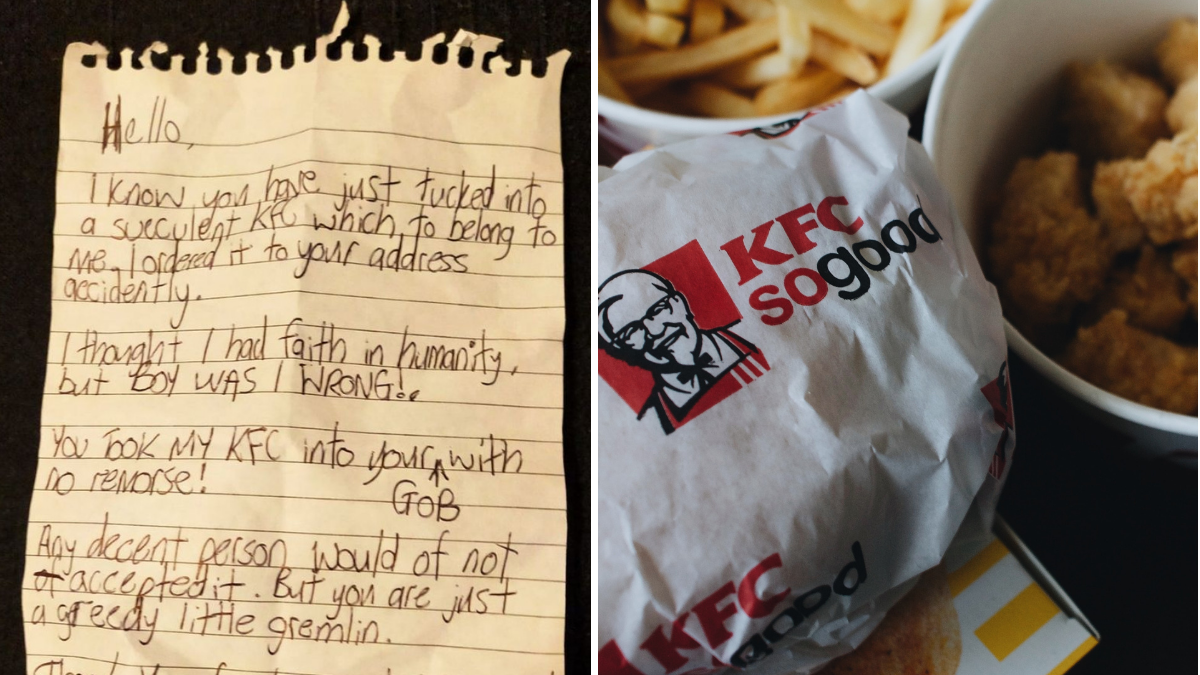 Hello,
I know you have just tucked into
a succulent KFC which, to belong to
me. I ordered it to your address
accidently.
I thought I had faith in humanity,
but BOY WAS I WRONG!.
You TOOK MY KFC into your with
no remorse!
GOB
Any decent person would of not
accepted it. But you are just
a greedy little gremlin.
KFC
sogood
KFC
good